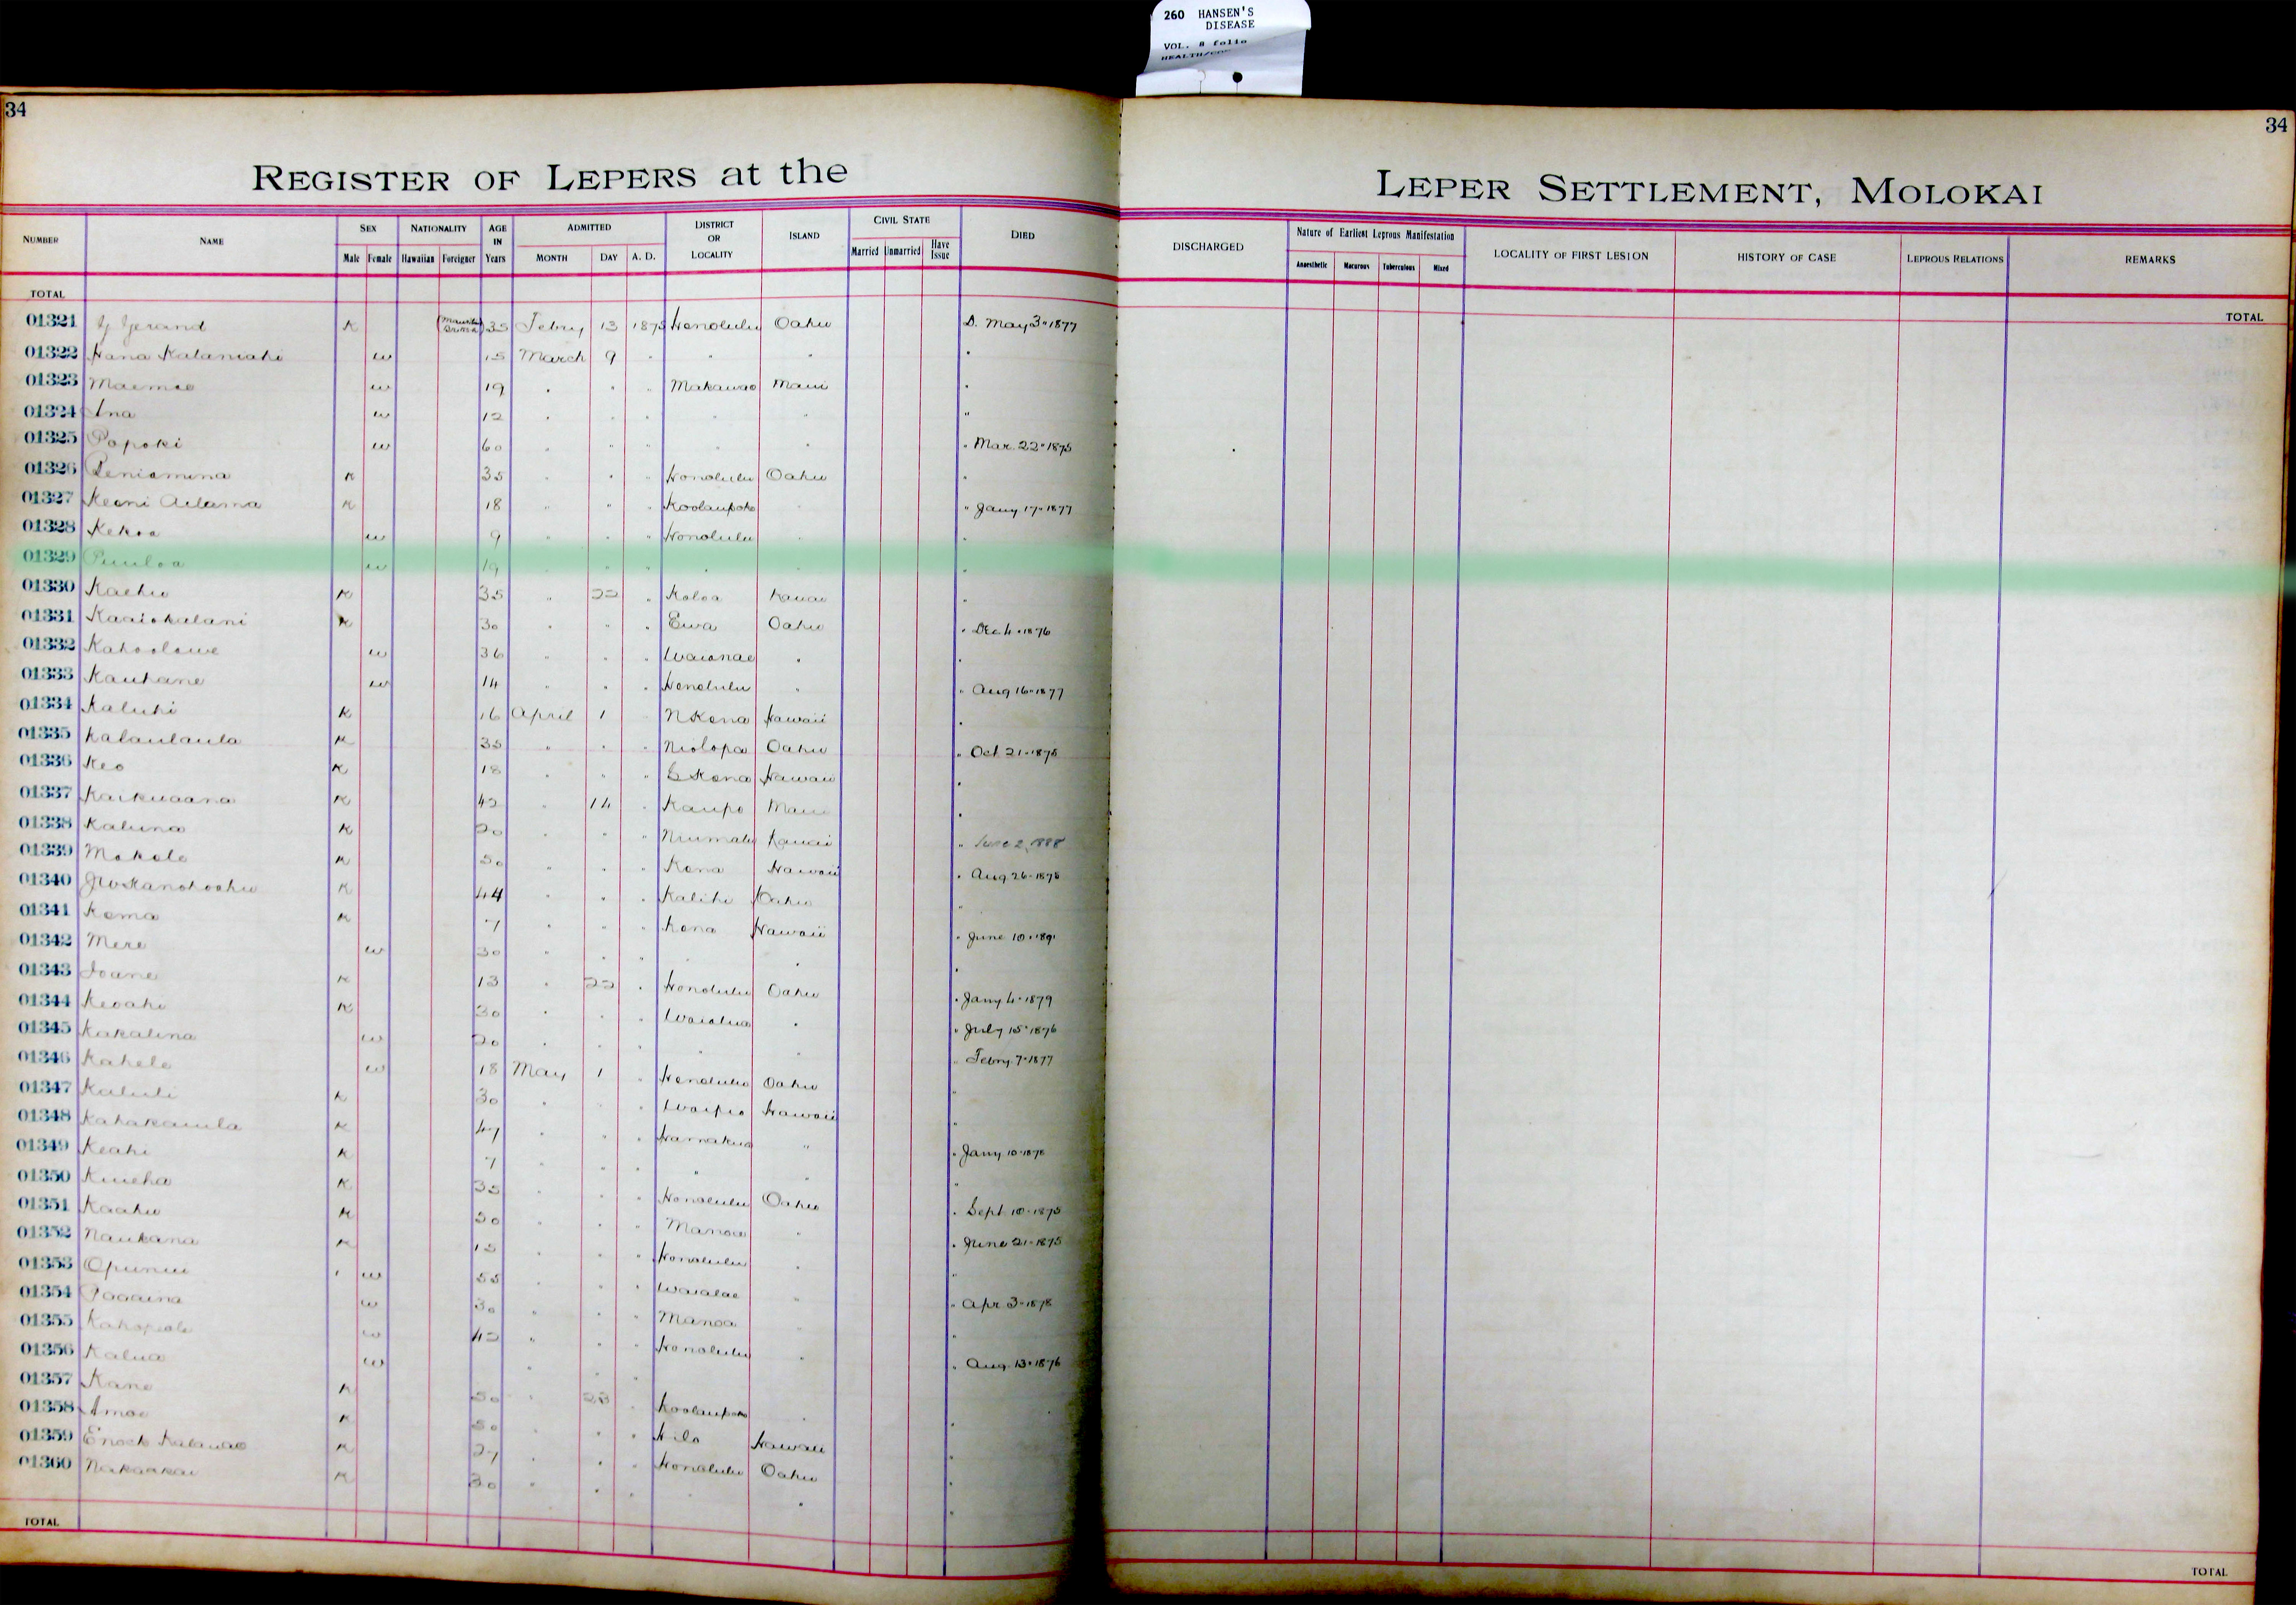 260 HANSEN'S
DISEASE
VOL. 8 folio
34
34
REGISTER OF LEPERS at the
LEPER SETTLEMENT, MOLOKAI
NUMBER NAME SEX NATIONALITY AGE IN Years ADMITTED DISTRICT OR LOCALITY ISLAND CIVIL STATE DIED
Male Female Hawaiian Foreigner MONTH DAY A. D. Married Unmarried Have Issue
DISCHARGED Nature of Earliest Leprous Manifestation LOCALITY OF FIRST LESION HISTORY OF CASE LEPROUS RELATIONS REMARKS
Anaesthetic Macurous Tuberculous Mixed
TOTAL
TOTAL
01321 K 35 Febry 13 1875 Honolulu Oahu D. May 3 " 1877
01322 Hana w 15 March 9 " " " "
01323 Maemae w 19 " " " Makawao Maui "
01324 Ana w 12 " " " " " "
01325 Popoki w 60 " " " " " " Mar. 22 " 1875
01326 Peniamina K 35 " " " Honolulu Oahu "
01327 Keoni Adama K 18 " " " Koolaupoko " " Jany 17 " 1877
01328 Kekoa w 9 " " " Honolulu " "
01329 Puuloa w 19 " " " " "
01330 Kaehu K 35 " 22 " Koloa Kauai "
01331 Kaaiokalani K 30 " " " Ewa Oahu " Dec 4 " 1876
01332 Kahoolawe w 36 " " " Waianae " "
01333 Kauhane w 14 " " " Honolulu " " Aug 16 " 1877
01334 Kaluhi K 16 April 1 " N Kona Hawaii "
01335 Kalaulaula K 35 " " " Niolopa Oahu " Oct 21 " 1878
01336 Keo K 18 " " " S Kona Hawaii "
01337 Kaikuaana K 42 " 14 " Kaupo Maui "
01338 Kaluna K 20 " " " Niumalu Kauai " June 2, 1888
01339 Makole K 50 " " " Kona Hawaii " Aug 26 " 1878
01340 K 44 " " " Kalihi Oahu "
01341 Kema K 7 " " " Kona Hawaii " June 10 " 1891
01342 Mere w 30 " " " " " "
01343 Ioane K 13 " 22 " Honolulu Oahu " Jany 4 " 1879
01344 Keoahi K 30 " " " Waialua " " July 15 " 1876
01345 Kakalina w 20 " " " " " " Febry 7 " 1877
01346 Kahele w 18 May 1 " Honolulu Oahu "
01347 Kaluli K 30 " " " Waipio Hawaii "
01348 Kahakauila K 47 " " " Hamakua " " Jany 10 " 1878
01349 Keahi K 7 " " " " " "
01350 Kuieha K 35 " " " Honolulu Oahu " Sept 10 " 1875
01351 Kaahu K 50 " " " Manoa " " June 21 " 1875
01352 Naukana K 15 " " " Honolulu " "
01353 Opunui w 55 " " " Waialae " " Apr 3 " 1878
01354 w 30 " " " Manoa " "
01355 w 42 " " " Honolulu " " Aug. 13 " 1876
01356 Kalua w " " "
01357 Kane K 50 " 23 " Koolaupoko " "
01358 Amoe K 50 " " " Hilo Hawaii "
01359 Enoch Kalauao K 27 " " " Honolulu Oahu "
01360 Nakaakai K 30 " " " " " "
TOTAL
TOTAL